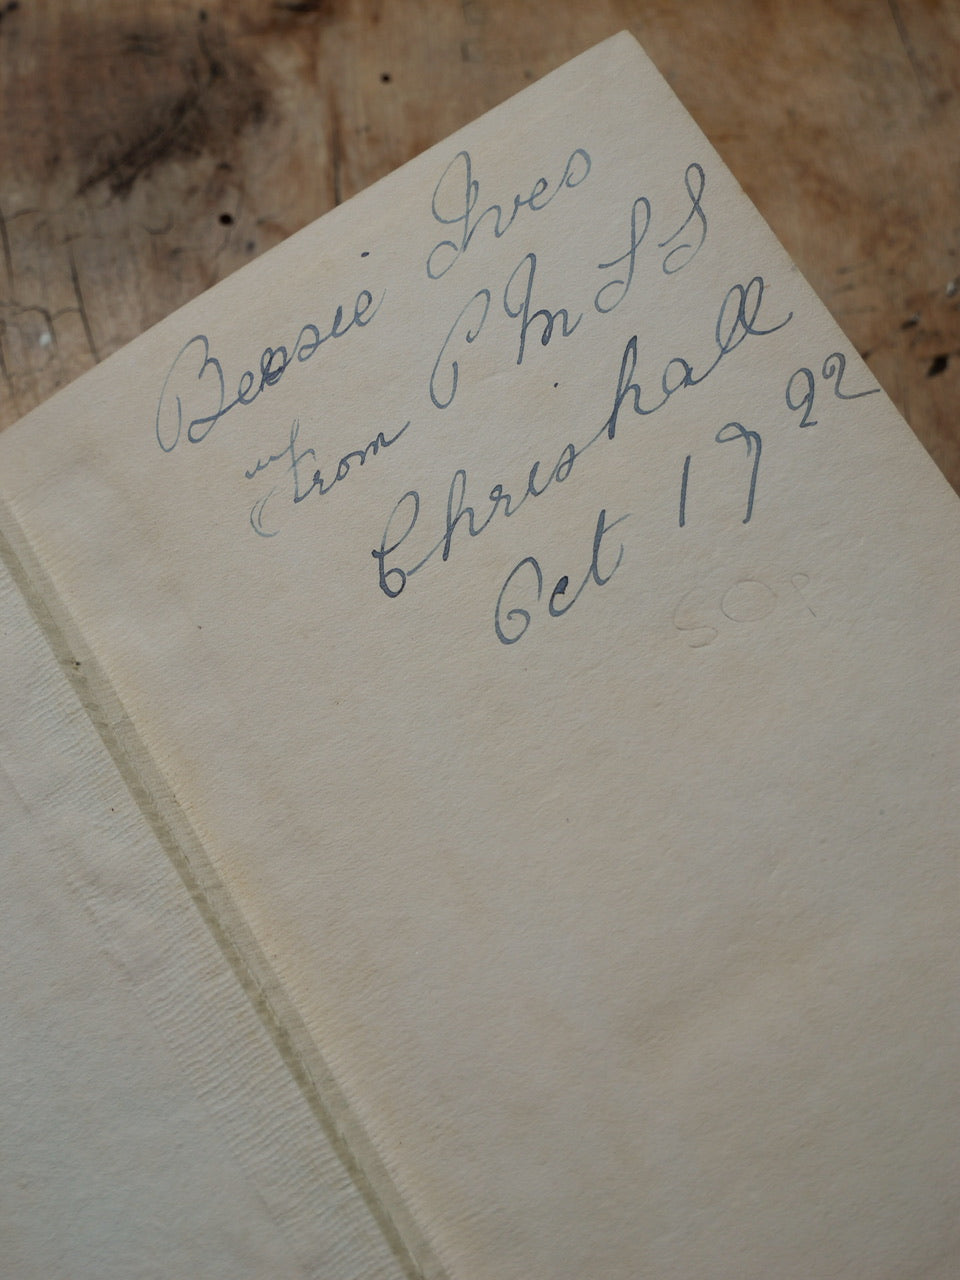 Bessie Ives
From P M S S
Chrishall
Oct 17 92